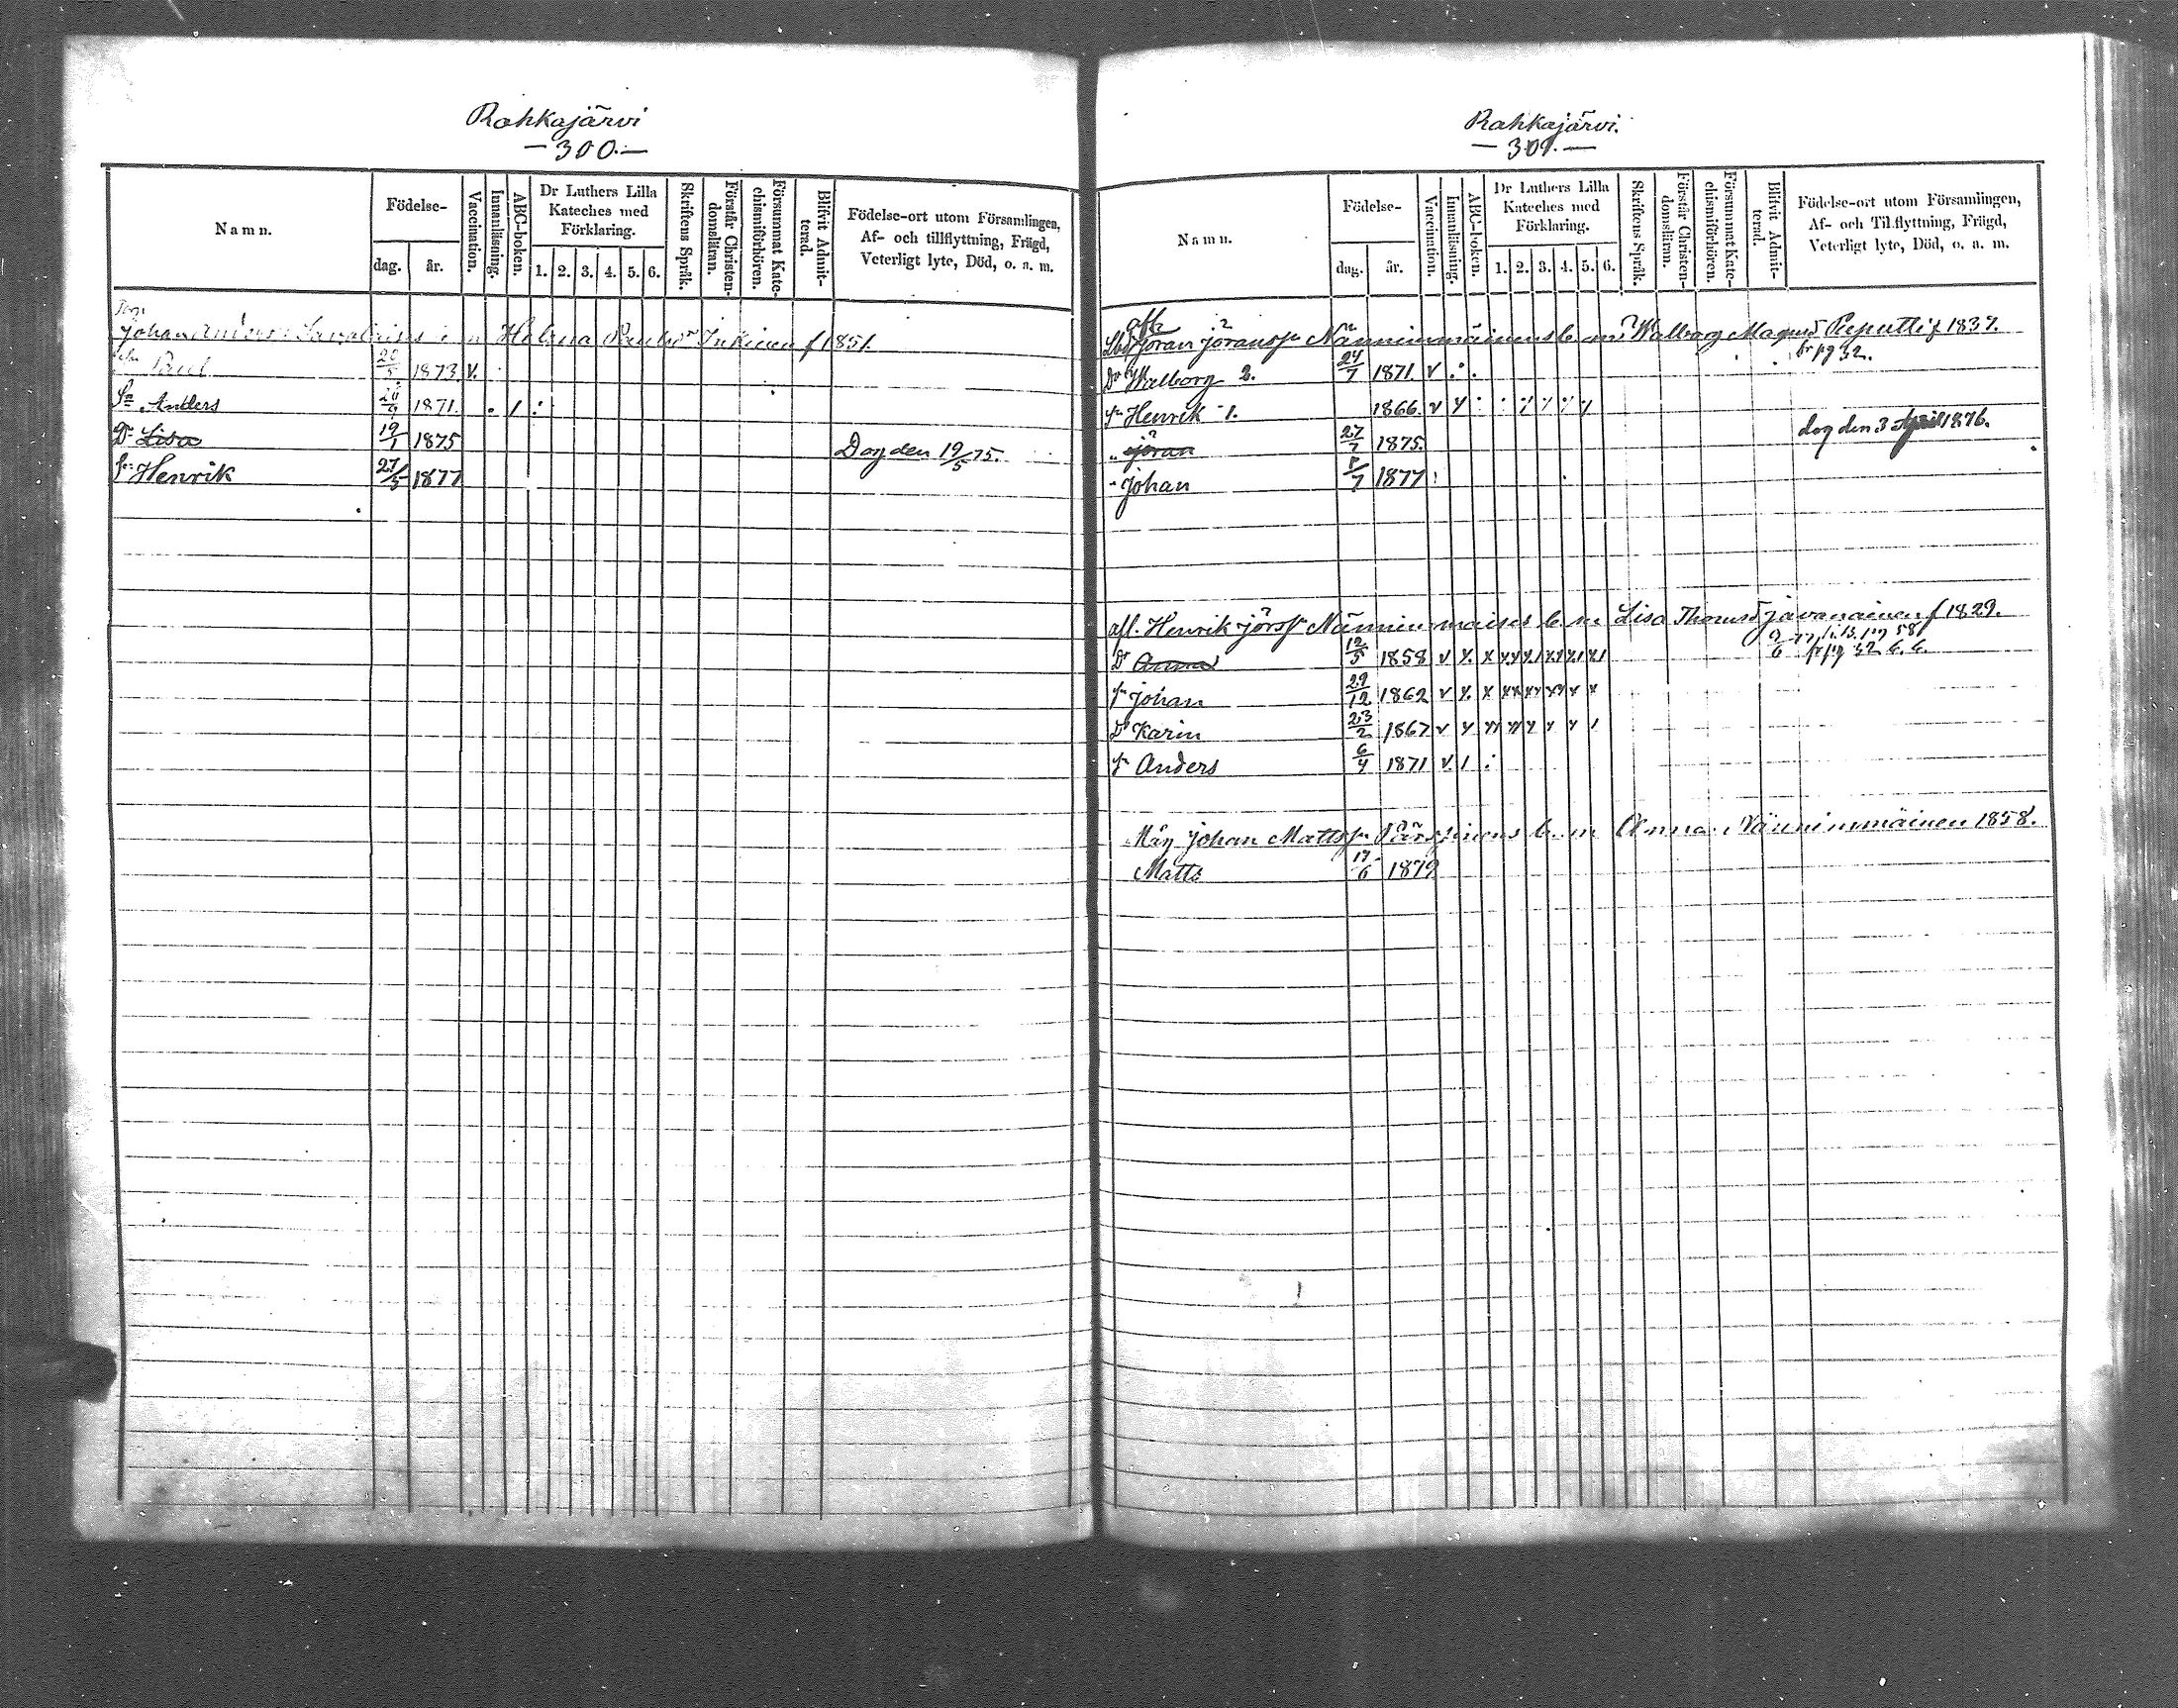 Rahkajärvi
— 300. —
Namn.
Födelse-
dag.
år.
Vaccination.
Innanläsning.
ABC-boken.
Dr Luthers Lilla
Kateches med
Förklaring.
1. 2. 3. 4. 5. 6.
Skriftens Språk.
Förstår Christen-
domsläran.
Försummat Kate-
chismiförhören.
Blifvit Admit-
terad.
Födelse-ort utom Församlingen,
Af- och tillflyttning, Frägd,
Veterligt lyte, Död, o. a. m.
Johan Helena Inkinen f 1851.
Paul 20/5 1873 v.
Sn Anders 1871.
Dr Lisa 19/1 1875 Dog den 19/5 75.
Sn Henrik 27/3 1877
Rahkajärvi.
— 301. —
Namn.
Födelse-
dag.
år.
Vaccination.
Innanläsning.
ABC-boken.
Dr Luthers Lilla
Kateches med
Förklaring.
1. 2. 3. 4. 5. 6.
Skriftens Språk.
Förstår Christen-
domsläran.
Försummat Kate-
chismiförhören.
Blifvit Admit-
terad.
Födelse-ort utom Församlingen,
Af- och Tillflyttning, Frägd,
Veterligt lyte, Död, o. a. m.
afl.
Göran Göranss Nännimmäinens b. m. Walborg Magnsd Pieputti f 1837.
fr pg 32.
Dr Walborg 2. 24/7 1871. v
Sn Henrik 1. 1866. v
" Göran 27/7 1875. dog den 3 April 1876.
" Johan 1877
afl. Henrik Görss Nännimmäises b. m. Lisa Thomsd Javanainen f 1829.
Dr Anna 12/5 1858 v
fr pg 32
Sn Johan 29/12 1862 v
Dr Karin 23/2 1867 v
Sn Anders 6/4 1871 v
Måg Johan Mattss b. m Anna Nännimmäinen 1858.
Matts 17/6 1879